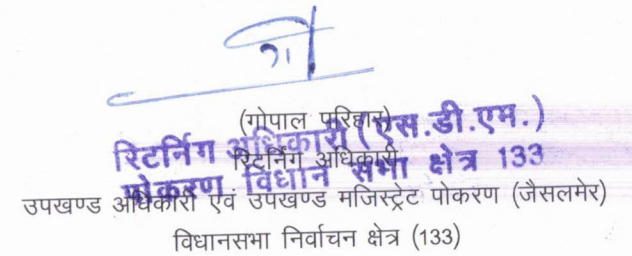 (गोपाल परिहार)
रिटर्निंग अधिकारी (एस.डी.एम.)
रिटर्निंग अधिकारी
पोकरण विधान सभा क्षेत्र 133
उपखण्ड अधिकारी एवं उपखण्ड मजिस्ट्रेट पोकरण (जैसलमेर)
विधानसभा निर्वाचन क्षेत्र (133)